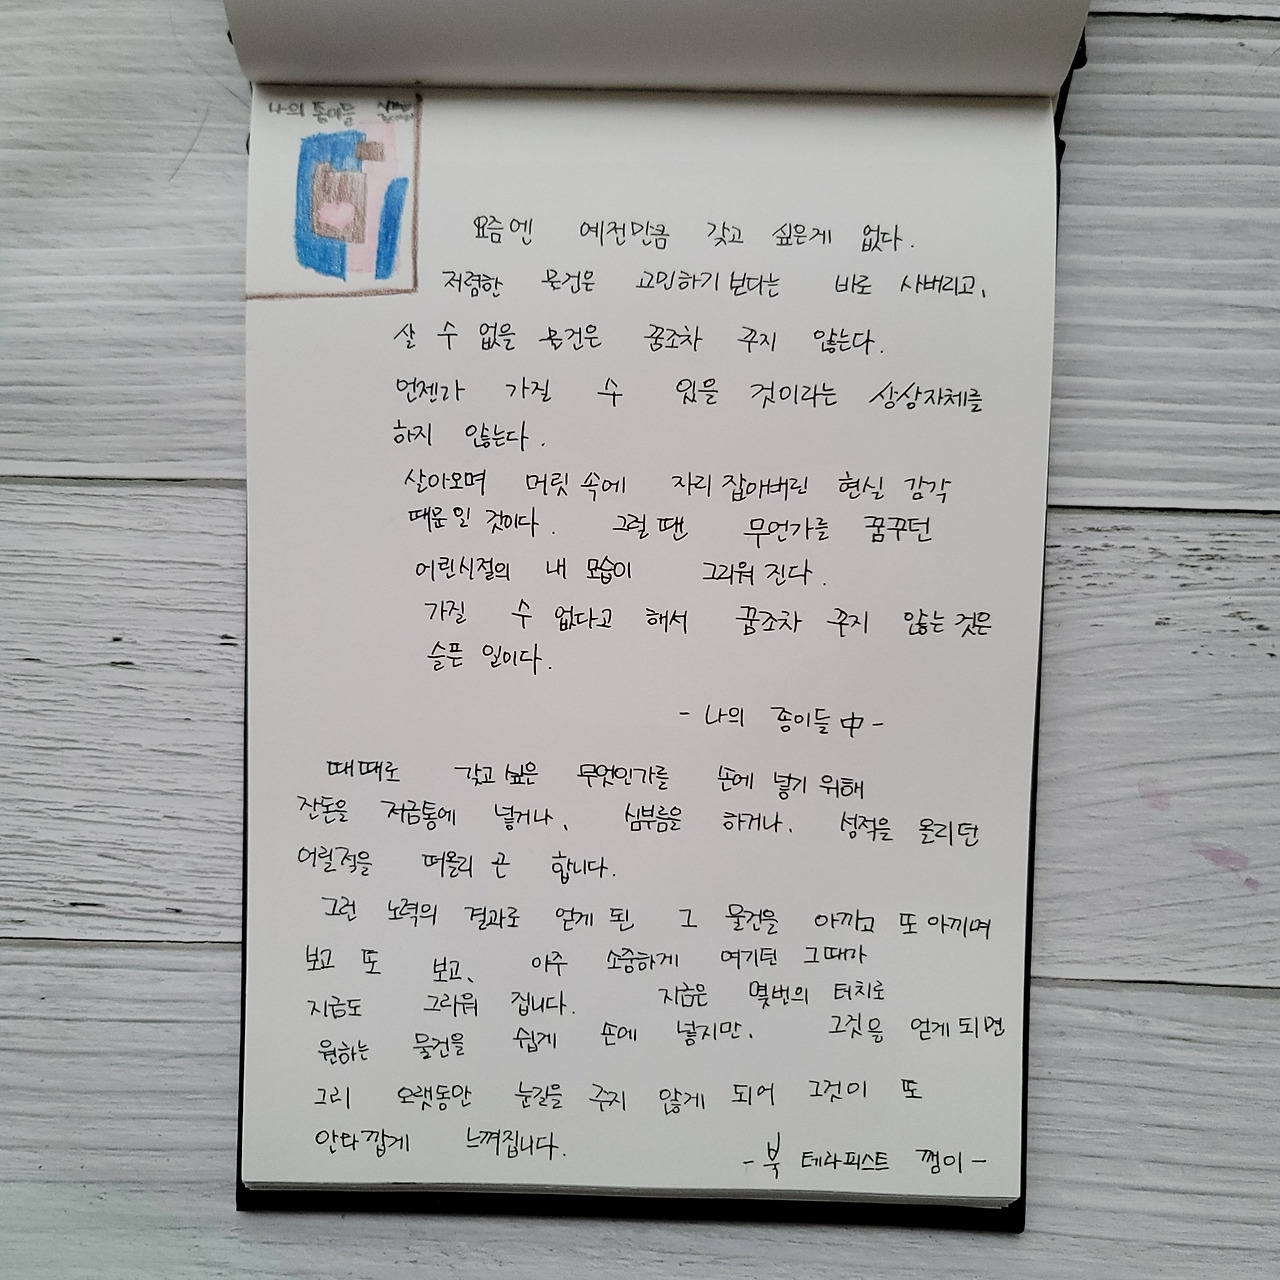 나의 종이들
요즘엔 예전만큼 갖고 싶은게 없다.
저렴한 물건은 고민하기 보다는 바로 사버리고,
살 수 없을 물건은 꿈조차 꾸지 않는다.
언젠가 가질 수 있을 것이라는 상상자체를
하지 않는다.
살아오며 머릿 속에 자리 잡아버린 현실 감각
때문일 것이다. 그럴 땐 무언가를 꿈꾸던
어린시절의 내 모습이 그리워 진다.
가질 수 없다고 해서 꿈조차 꾸지 않는 것은
슬픈 일이다.
- 나의 종이들 中 -
때때로 갖고 싶은 무엇인가를 손에 넣기 위해
잔돈을 저금통에 넣거나, 심부름을 하거나, 성적을 올리던
어릴적을 떠올리 곤 합니다.
그런 노력의 결과로 얻게 된 그 물건을 아끼고 또 아끼며
보고 또 보고, 아주 소중하게 여기던 그때가
지금도 그리워 집니다. 지금은 몇번의 터치로
원하는 물건을 쉽게 손에 넣지만, 그것을 얻게 되면
그리 오랫동안 눈길을 주지 않게 되어 그것이 또
안타깝게 느껴집니다.
- 북 테라피스트 깸이 -